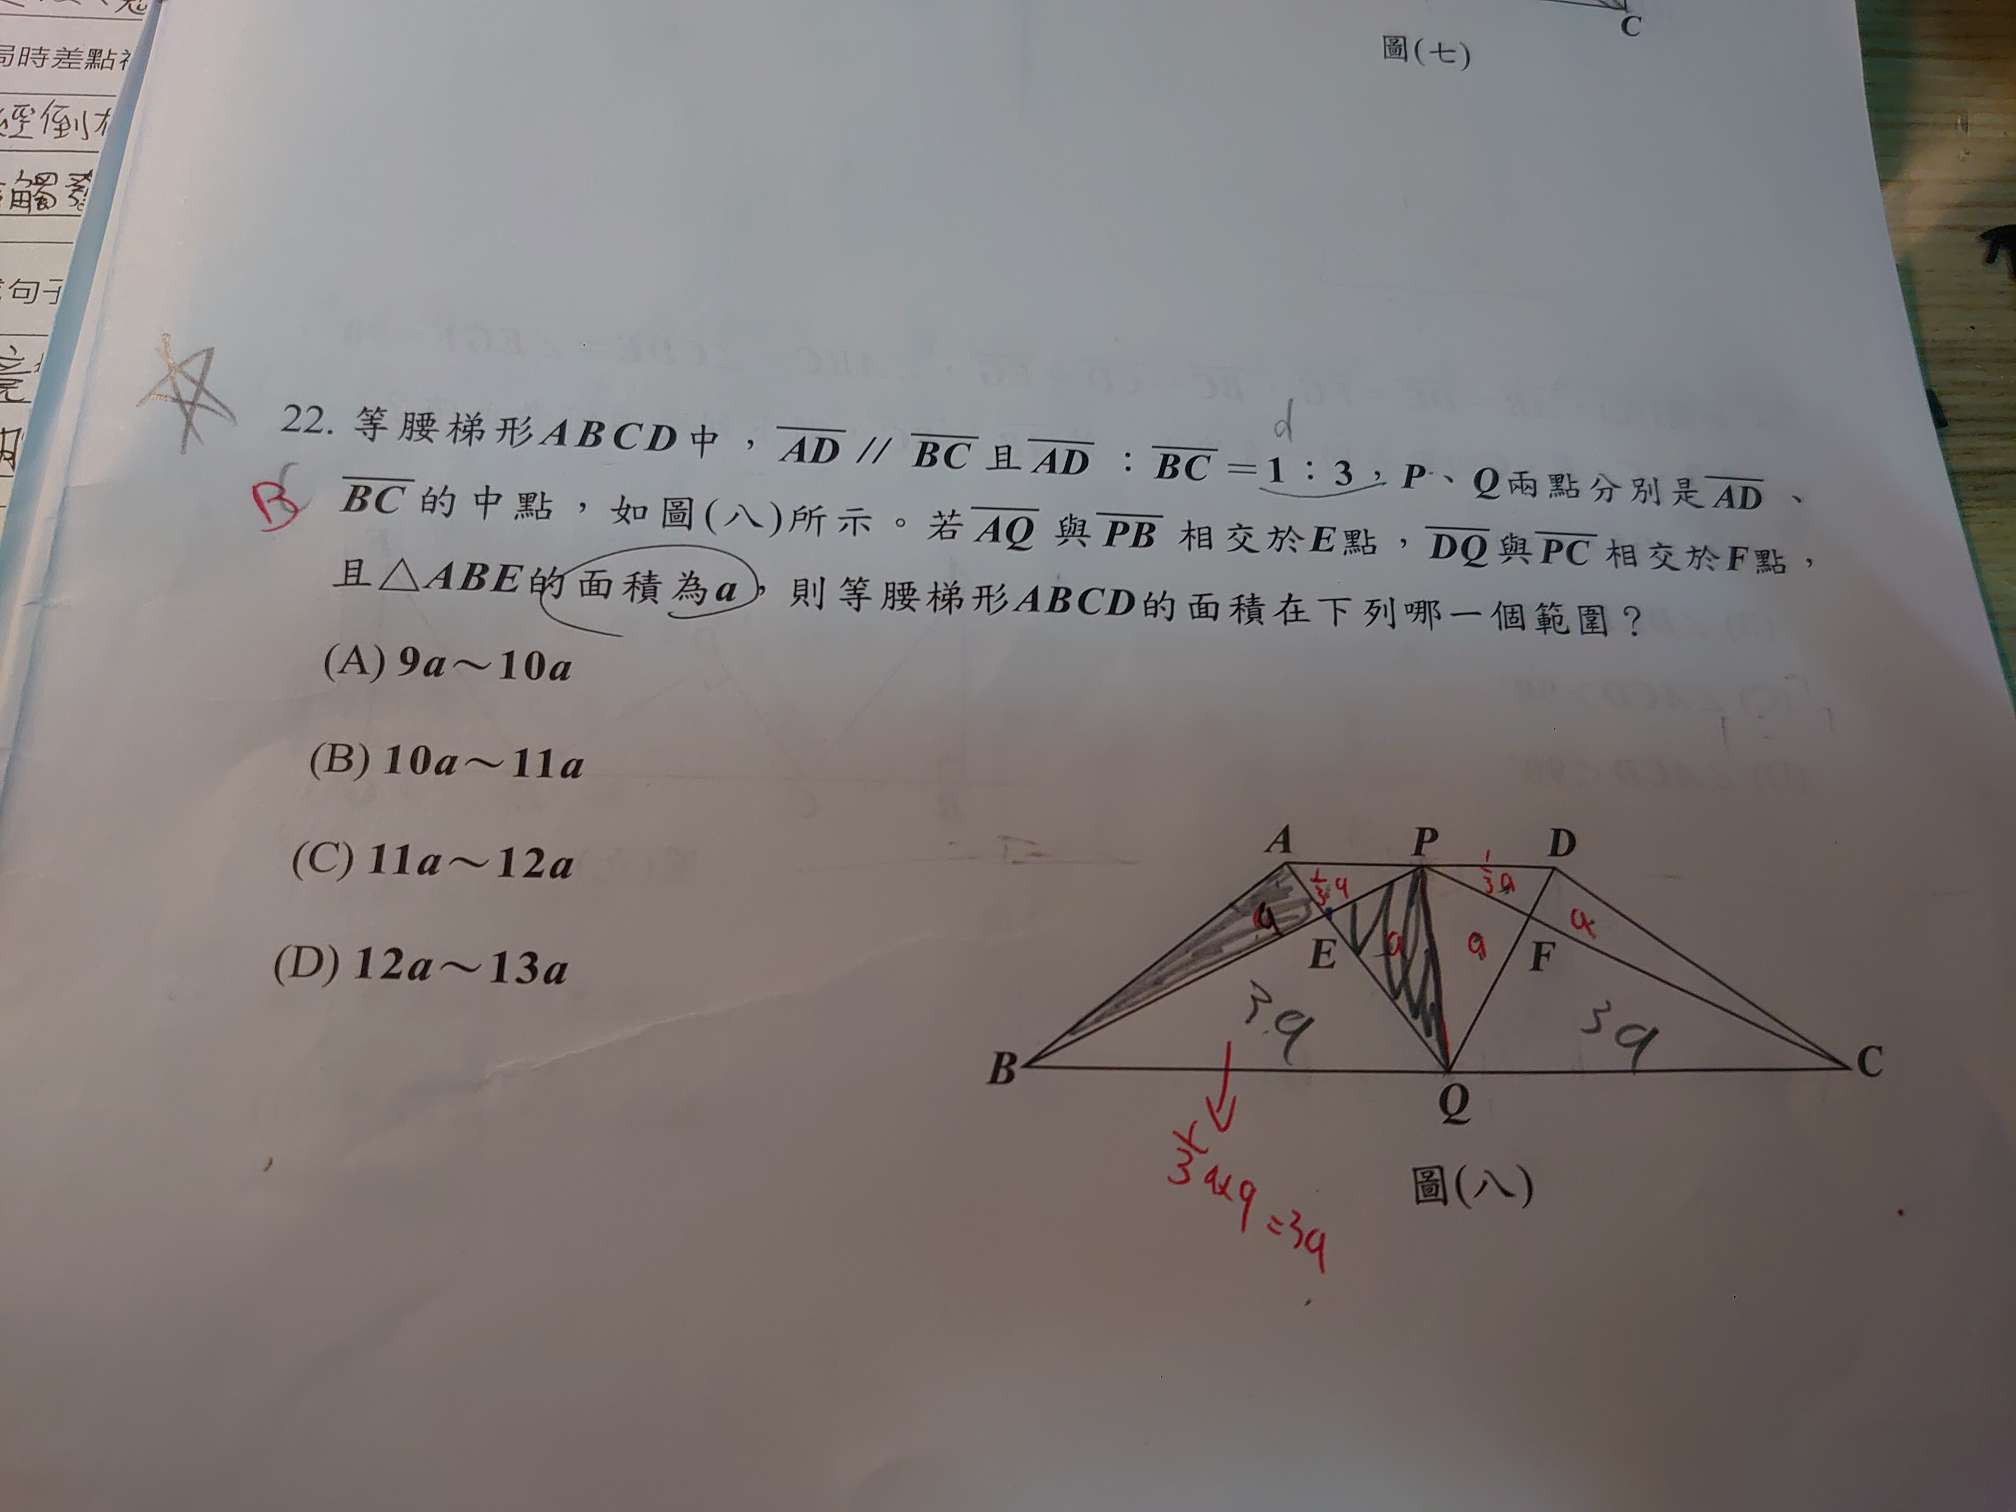 C
圖(七)
局時差點
經倒
觸發
句子
22. 等腰梯形ABCD中，AD // BC 且 AD : BC = 1 : 3，P、Q兩點分別是AD、
d
B
BC的中點，如圖(八)所示。若AQ與PB相交於E點，DQ與PC相交於F點，
且△ABE的面積為a，則等腰梯形ABCD的面積在下列哪一個範圍？
(A) 9a～10a
(B) 10a～11a
(C) 11a～12a
(D) 12a～13a
A P D
1/3 a 1/3 a
a a a a
E F
3a 3a
B Q C
1/3 a×9=3a
圖(八)